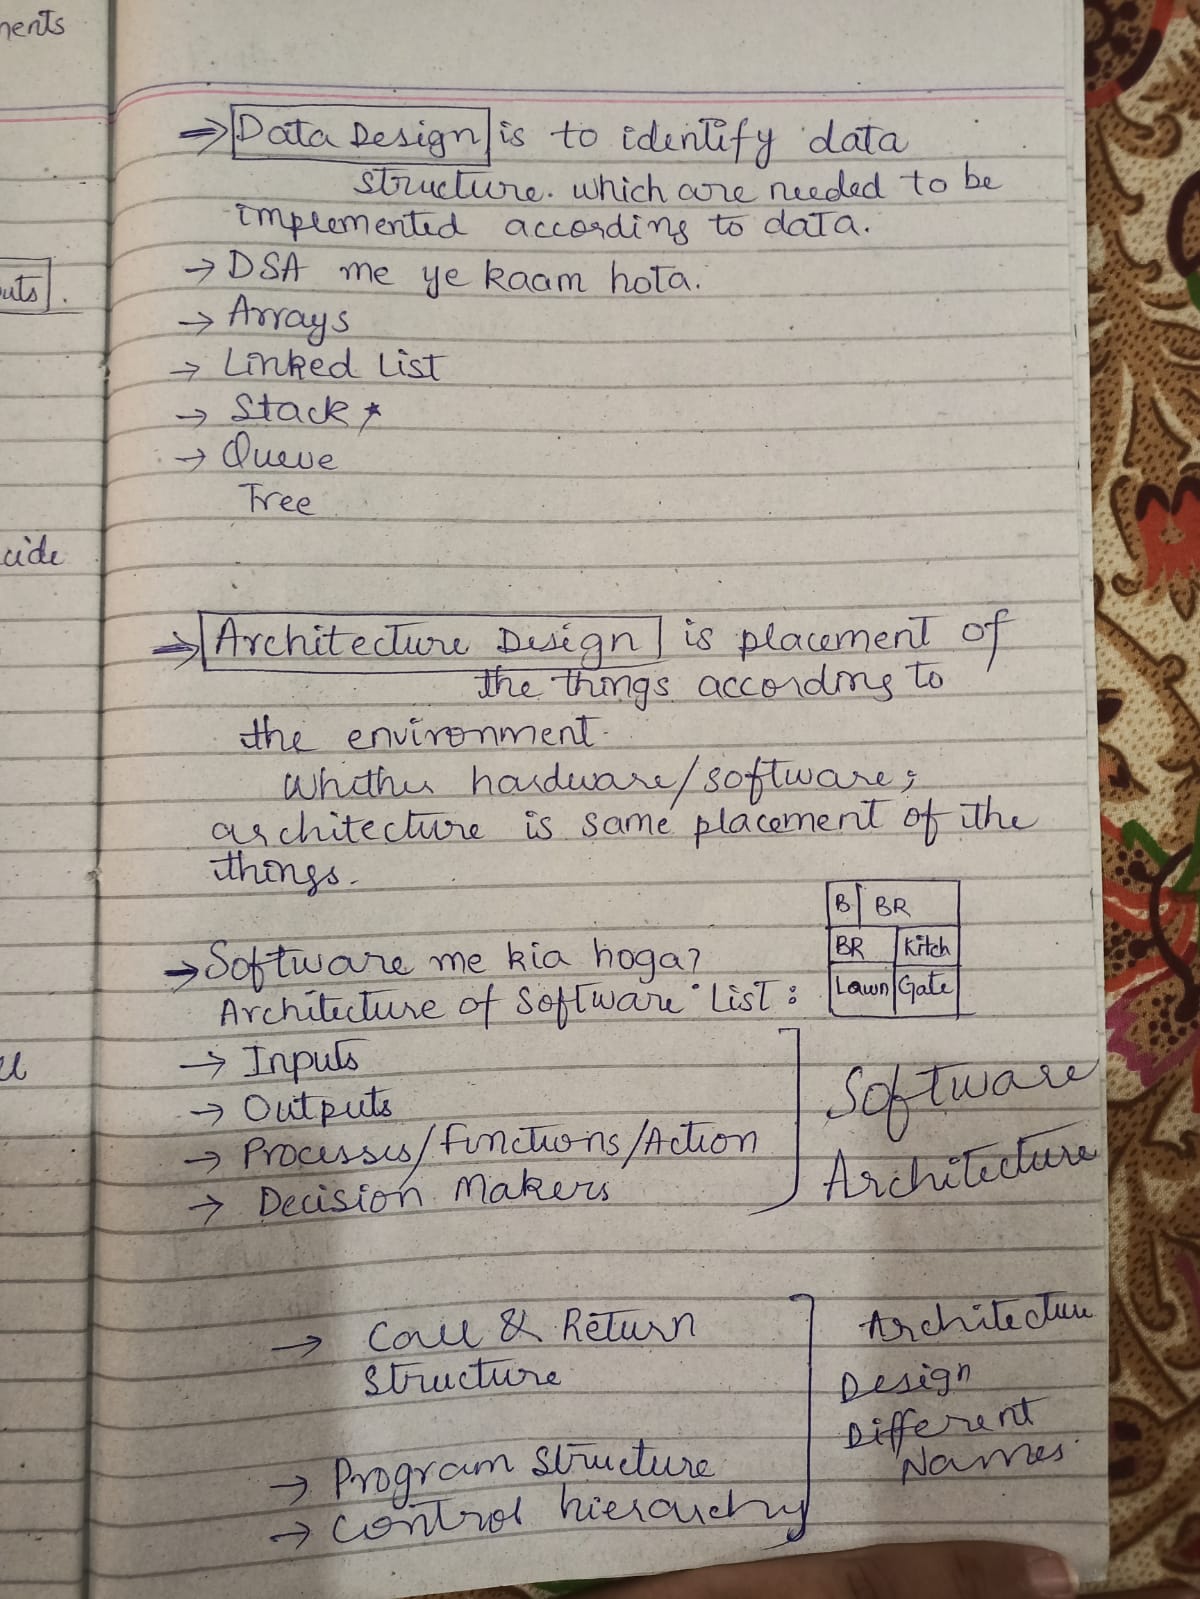 ments
uts.
cide
⇒ Data Design is to identify data
structure. which are needed to be
implemented according to data.
→ DSA me ye kaam hota.
→ Arrays
→ Linked List
→ Stack ★
→ Queue
Tree
⇒ Architecture Design is placement of
the things according to
the environment.
Whether hardware/software;
architecture is same placement of the
things.
B BR
BR Kitch
Lawn Gate
→ Software me kia hoga?
Architecture of Software List:
→ Inputs
→ Outputs
→ Processes/Functions/Action
→ Decision Makers
Software
Architecture
→ Call & Return
Structure
→ Program Structure
→ Control hierarchy
Architecture
Design
Different
Names.